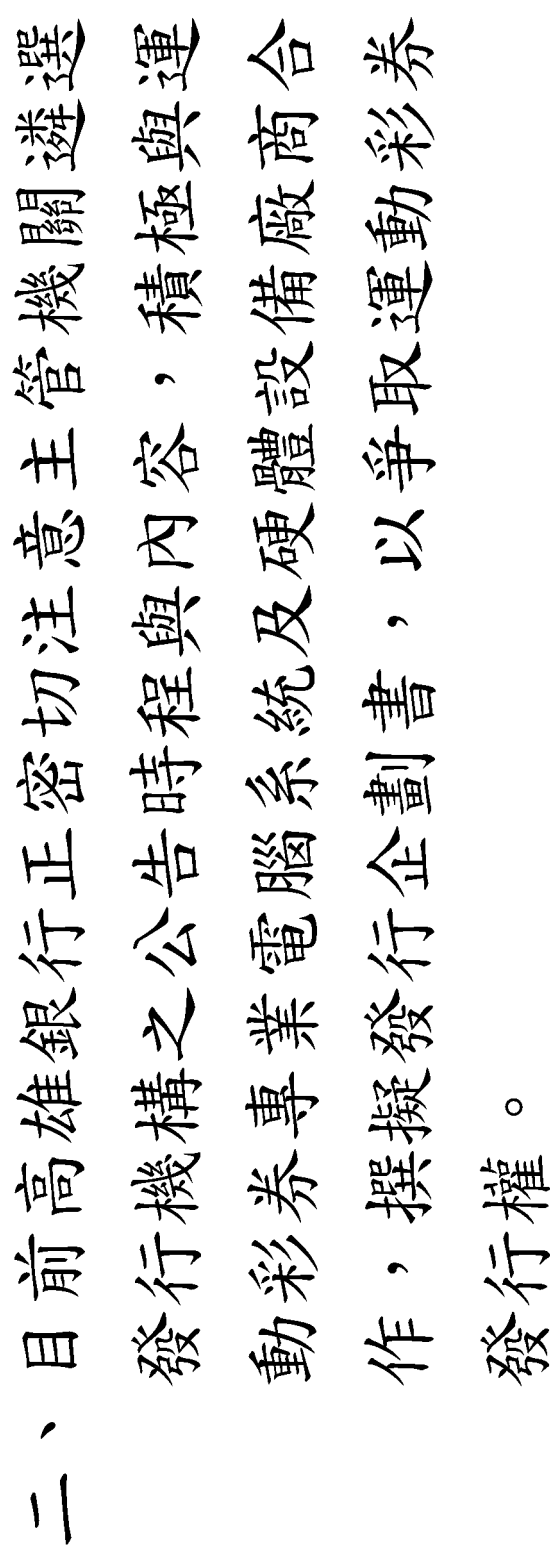 二、目前高雄銀行正密切注意主管機關遴選
發行機構之公告時程與內容，積極與運
動彩券專業電腦系統及硬體設備廠商合
作，撰擬發行企劃書，以爭取運動彩券
發行權。